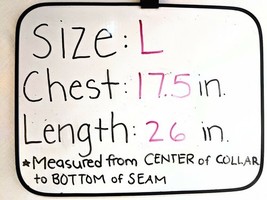 Size: L
Chest: 17.5 in.
Length: 26 in.
*Measured from CENTER of COLLAR
to BOTTOM of SEAM